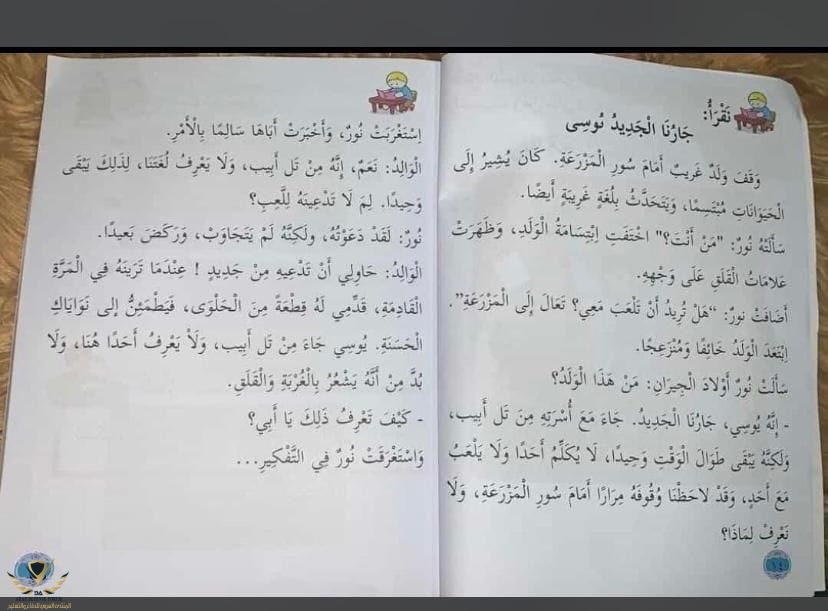 نَقْرَأُ:
جَارُنَا الْجَدِيدُ يُوسِي
وَقَفَ وَلَدٌ غَرِيبٌ أَمَامَ سُورِ الْمَزْرَعَةِ. كَانَ يُشِيرُ إِلَى
الْحَيَوَانَاتِ مُبْتَسِمًا، وَيَتَحَدَّثُ بِلُغَةٍ غَرِيبَةٍ أَيضًا.
سَأَلَتْهُ نُورُ: "مَنْ أَنْتَ؟" اخْتَفَتِ ابْتِسَامَةُ الْوَلَدِ، وَظَهَرَتْ
عَلامَاتُ الْقَلَقِ عَلَى وَجْهِهِ.
أَضَافَتْ نورُ: "هَلْ تُرِيدُ أَنْ تَلْعَبَ مَعِي؟ تَعَالَ إِلَى الْمَزْرَعَةِ".
ابْتَعَدَ الْوَلَدُ خَائِفًا وَمُنْزَعِجًا.
سَأَلَتْ نُورُ أَوْلادَ الْجِيرَانِ: مَنْ هَذَا الْوَلَدُ؟
- إِنَّهُ يُوسِي، جَارُنَا الْجَدِيدُ. جَاءَ مَعَ أُسْرَتِهِ مِنَ تَل أَبِيب،
وَلَكِنَّهُ يَبْقَى طَوَالَ الْوَقْتِ وَحِيدًا، لَا يُكَلِّمُ أَحَدًا وَلَا يَلْعَبُ
مَعَ أَحَدٍ، وَقَدْ لاحَظْنَا وُقُوفَهُ مِرَارًا أَمَامَ سُورِ الْمَزْرَعَةِ، وَلَا
نَعْرِفُ لِمَاذَا؟
١٤
اِسْتَغْرَبَتْ نُورُ، وَأَخْبَرَتْ أَبَاهَا سَالِمًا بِالْأَمْرِ.
الْوَالِدُ: نَعَمْ، إِنَّهُ مِنْ تَل أَبِيب، وَلَا يَعْرِفُ لُغَتَنَا، لِذَلِكَ يَبْقَى
وَحِيدًا. لِمَ لَا تَدْعِينَهُ لِلَّعِبِ؟
نُورُ: لَقَدْ دَعَوْتُهُ، وَلَكِنَّهُ لَمْ يَتَجَاوَبْ، وَرَكَضَ بَعِيدًا.
الْوَالِدُ: حَاوِلِي أَنْ تَدْعِيهِ مِنْ جَدِيدٍ ! عِنْدَمَا تَرَيْنَهُ فِي الْمَرَّةِ
الْقَادِمَةِ، قَدِّمِي لَهُ قِطْعَةً مِنَ الْحَلْوَى، فَيَطْمَئِنُّ إِلى نَوَايَاكِ
الْحَسَنَةِ. يُوسِي جَاءَ مِنْ تَل أَبِيب، وَلَا يَعْرِفُ أَحَدًا هُنَا، وَلَا
بُدَّ مِنْ أَنَّهُ يَشْعُرُ بِالْغُرْبَةِ وَالْقَلَقِ.
- كَيْفَ تَعْرِفُ ذَلِكَ يَا أَبِي؟
وَاسْتَغْرَقَتْ نُورُ فِي التَّفْكِيرِ...
المنتدى العربي للدفاع والتسليح